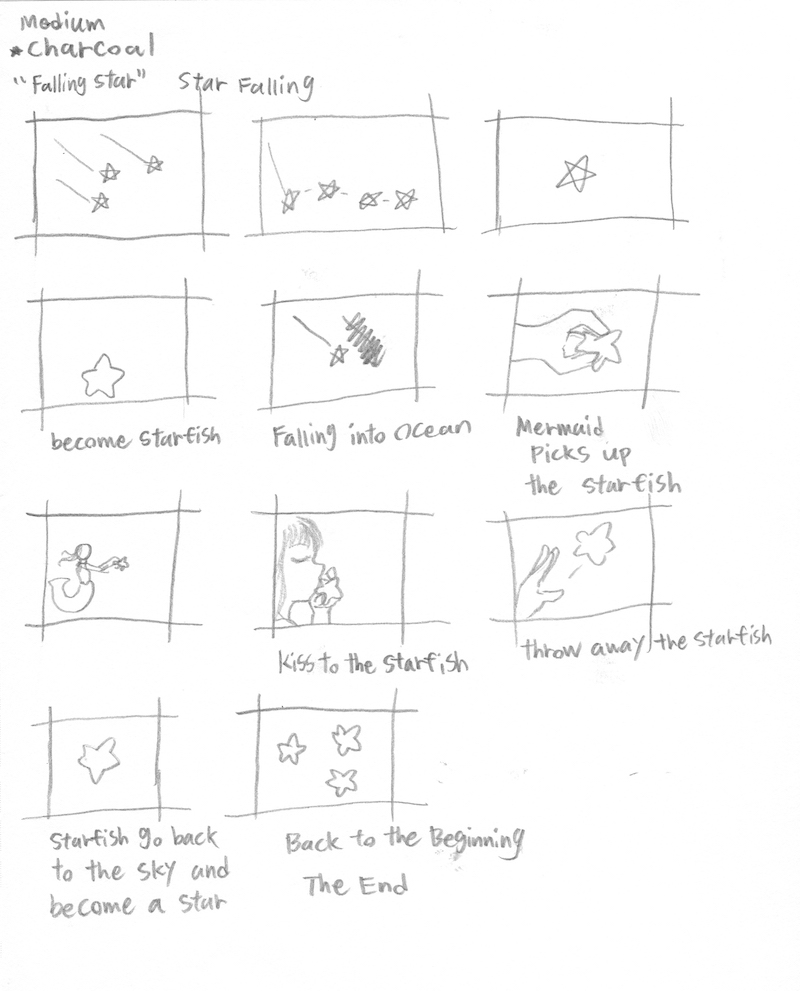 Medium
*Charcoal
"Falling Star" Star Falling
become Starfish
Falling into Ocean
Mermaid
Picks up
the Starfish
Kiss to the Starfish
throw away the Starfish
Starfish go back
to the sky and
become a Star
Back to the Beginning
The End